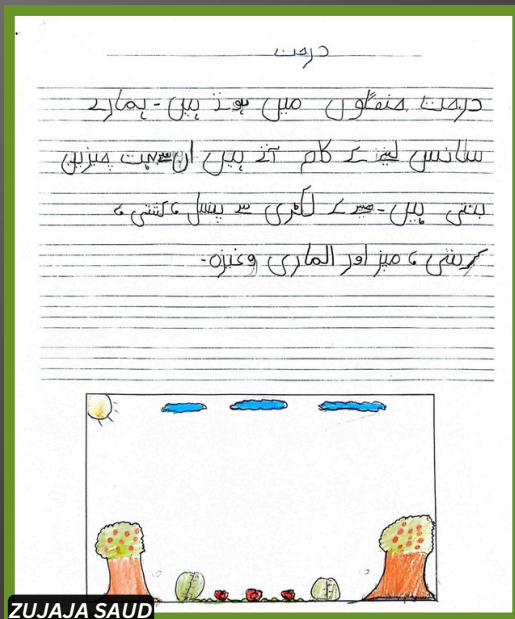 درخت
درخت جنگلوں میں ہوتے ہیں - ہمارے
سانس لینے کے کام آتے ہیں ان سے بہت چیزیں
بنتی ہیں - جیسے کے لکڑی سے پنسل، کشتی،
کرسی، میز اور الماری وغیرہ -
ZUJAJA SAUD